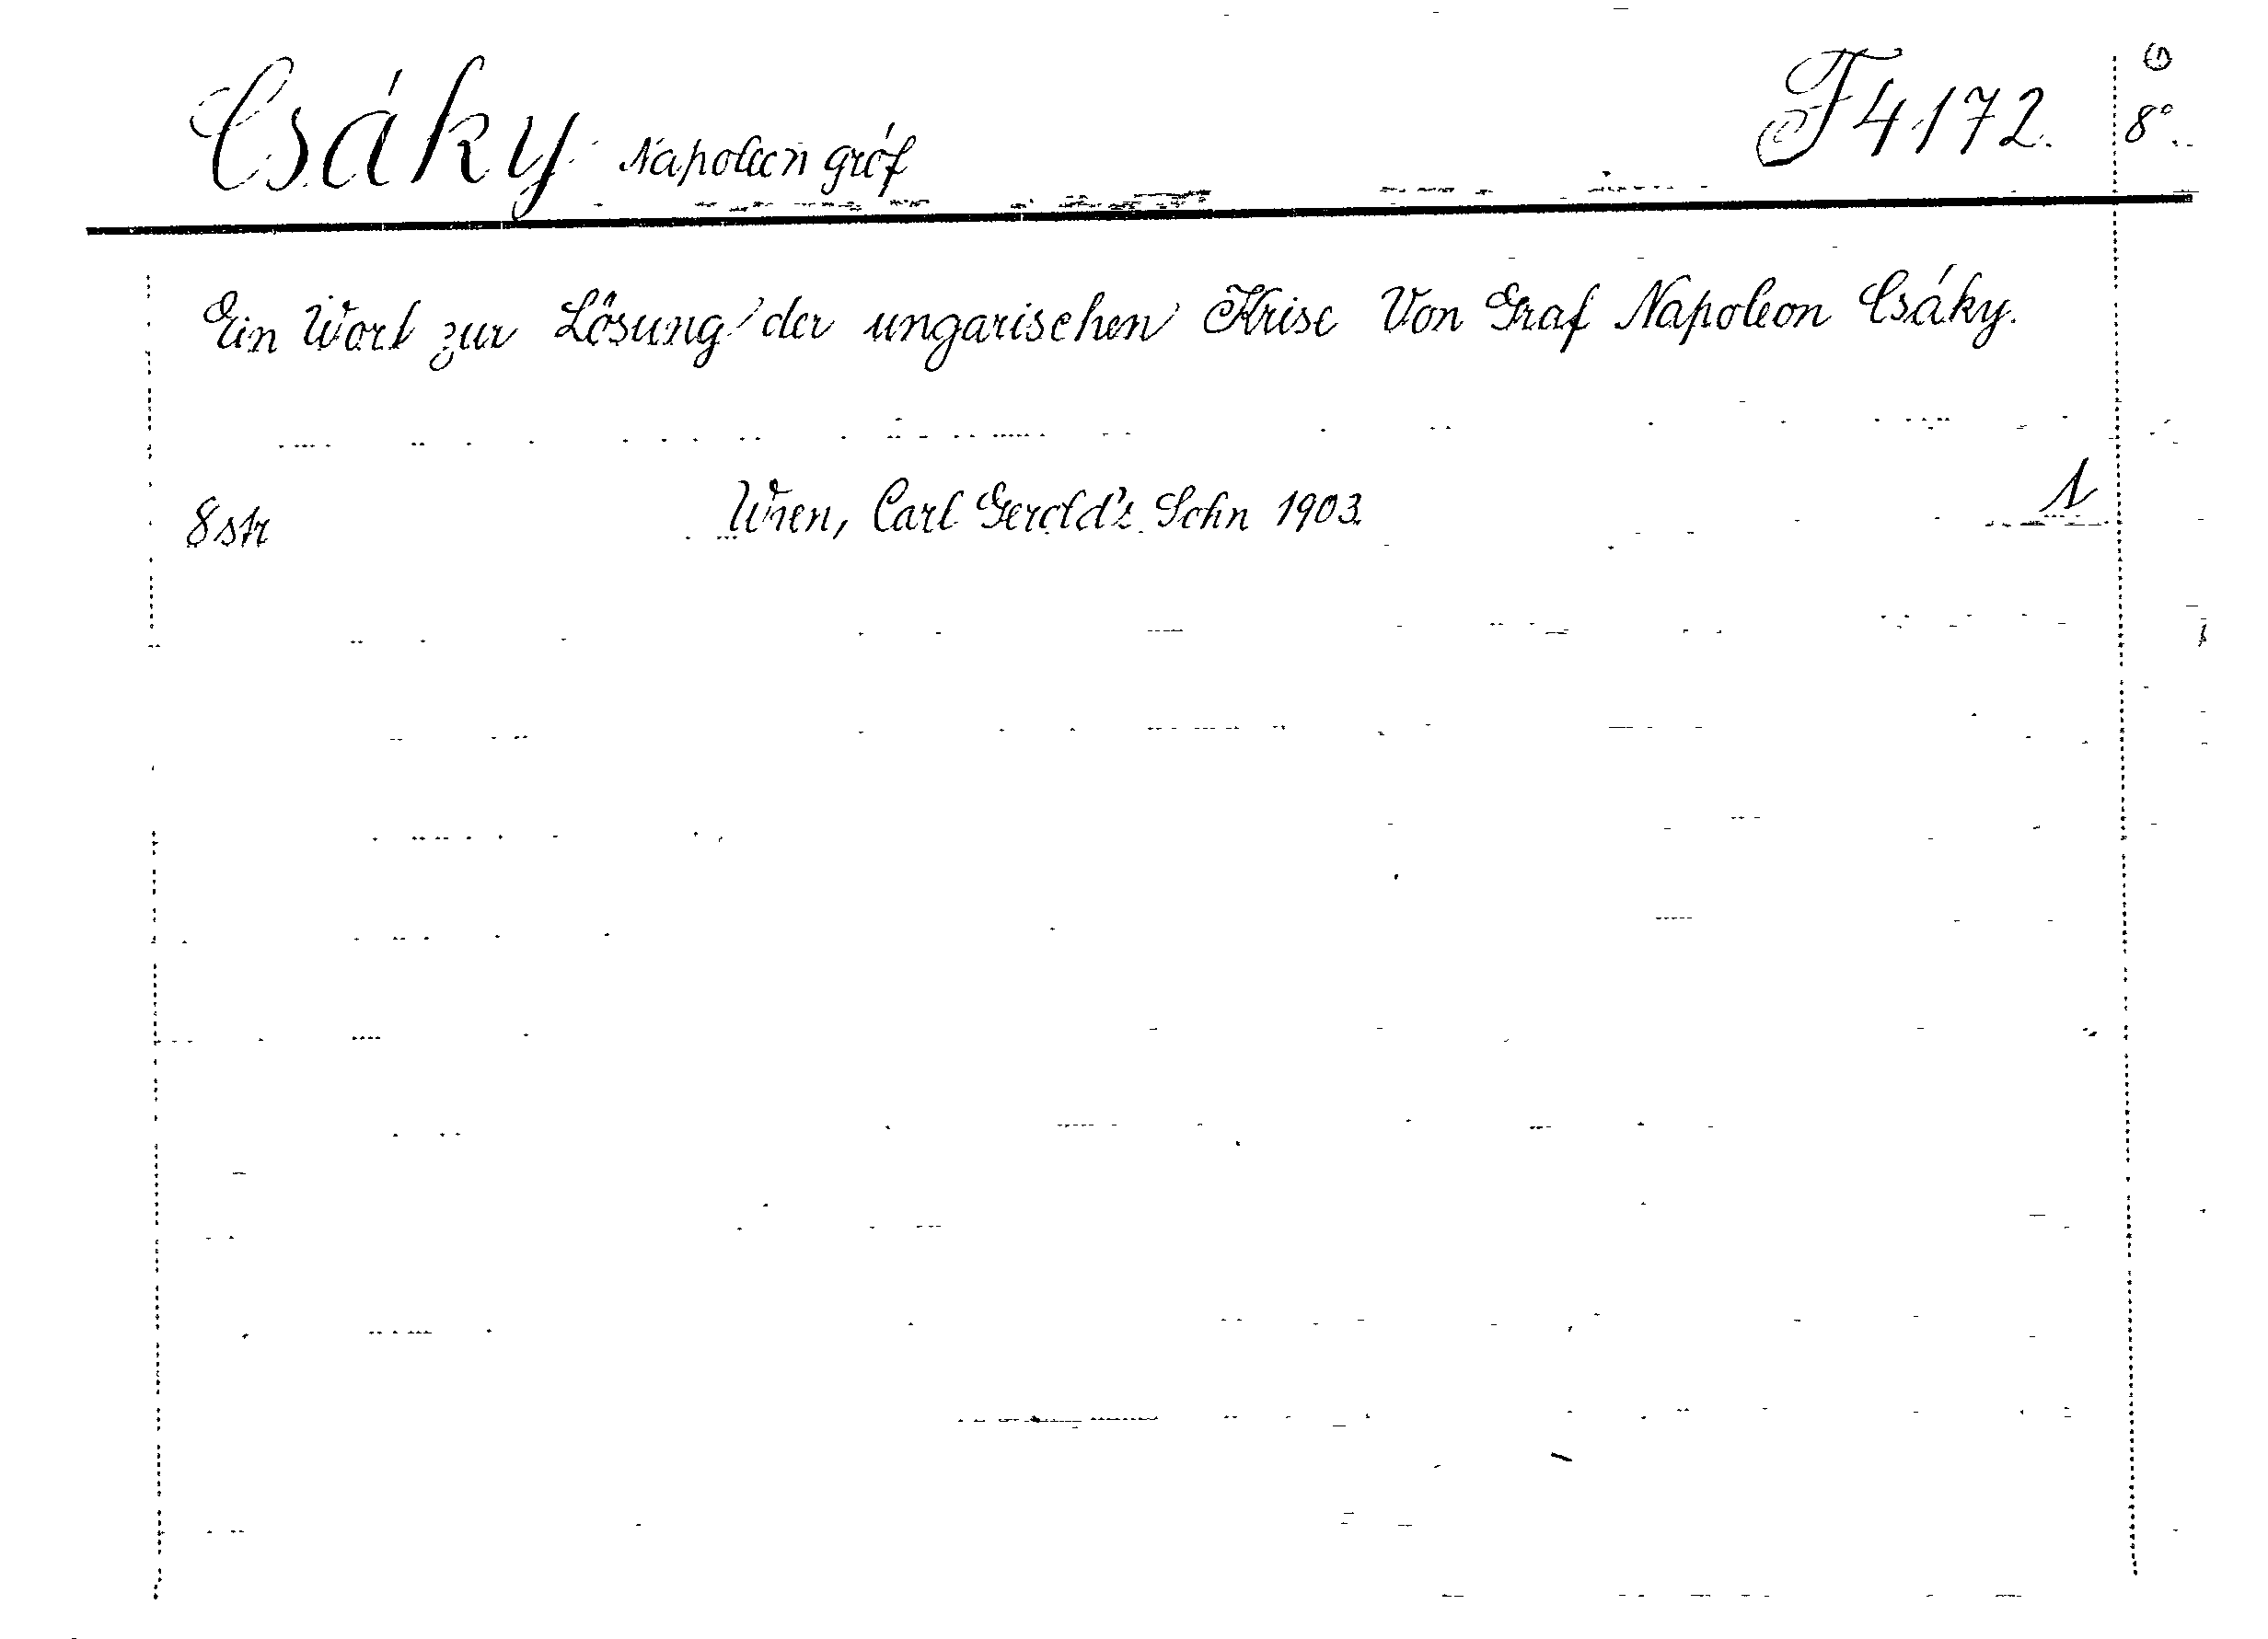 Csáky Napoleon gróf F 4172. 8°.
Ein Wort zur Lösung der ungarischen Krise Von Graf Napoleon Csáky.
8 str Wien, Carl Gerold's Sohn 1903. N